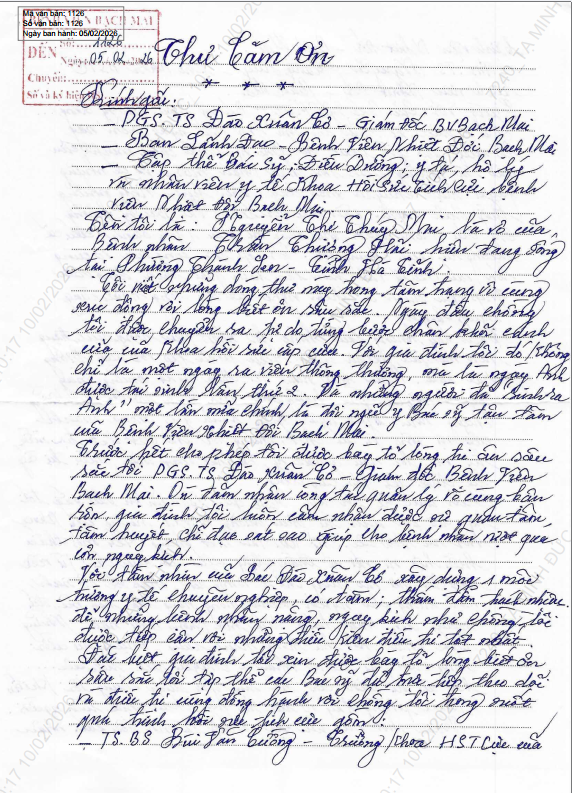 Mã văn bản: 1126
Số văn bản: 1126
Ngày ban hành: 05/02/2026
BẠCH MAI
Số: 1126
ĐẾN Ngày: 05.02.2026
Chuyển:
Số và ký hiệu
Thư Cảm Ơn
* * *
Kính gửi:
– PGS.TS Đào Xuân Cơ – Giám đốc BV Bạch Mai
– Ban Lãnh Đạo – Bệnh Viện Nhiệt Đới Bạch Mai
– Tập thể Bác sỹ, Điều Dưỡng, y tá, hộ lý
và nhân viên y tế Khoa Hồi sức tích cực bệnh
viện Nhiệt đới Bạch Mai
Tên tôi là: Nguyễn Thị Thúy Mai, là vợ của
Bệnh nhân Trần Thương Hải hiện đang sống
tại Phường Thành Sen – Tỉnh Hà Tĩnh.
Tôi viết những dòng thư này trong tâm trạng vô cùng
xúc động với lòng biết ơn sâu sắc. Ngày chồng
tôi được chuyển ra từng bước chân khỏi cánh
cửa của khoa hồi sức cấp cứu. Với gia đình tôi đó không
chỉ là một ngày ra viện thông thường, mà là ngày Anh
được tái sinh lần thứ 2. Và những người đã "sinh ra
Anh" một lần nữa chính là đội ngũ y Bác sỹ tận tâm
của Bệnh Viện Nhiệt đới Bạch Mai
Trước hết cho phép tôi được bày tỏ lòng tri ân sâu
sắc tới PGS.TS Đào Xuân Cơ – Giám đốc Bệnh Viện
Bạch Mai. Dù đảm nhận công tác quản lý vô cùng bận
rộn, gia đình tôi luôn cảm nhận được sự quan tâm,
tâm huyết, chỉ đạo sát sao giúp cho bệnh nhân vượt qua
cơn nguy kịch.
Với tầm nhìn của Bác Đào Xuân Cơ xây dựng 1 môi
trường y tế chuyên nghiệp, có tâm; thấm đẫm
để những bệnh nhân nặng, nguy kịch như chồng tôi
được tiếp cận với những điều kiện điều trị tốt nhất
Đặc biệt gia đình tôi xin được bày tỏ lòng biết ơn
sâu sắc tới tập thể các Bác sỹ đã trực tiếp theo dõi
và điều trị cùng đồng hành với chồng tôi trong suốt
quá trình hồi sức tích cực gồm:
– TS.BS Bùi Văn Cường – Trưởng khoa HSTCực của